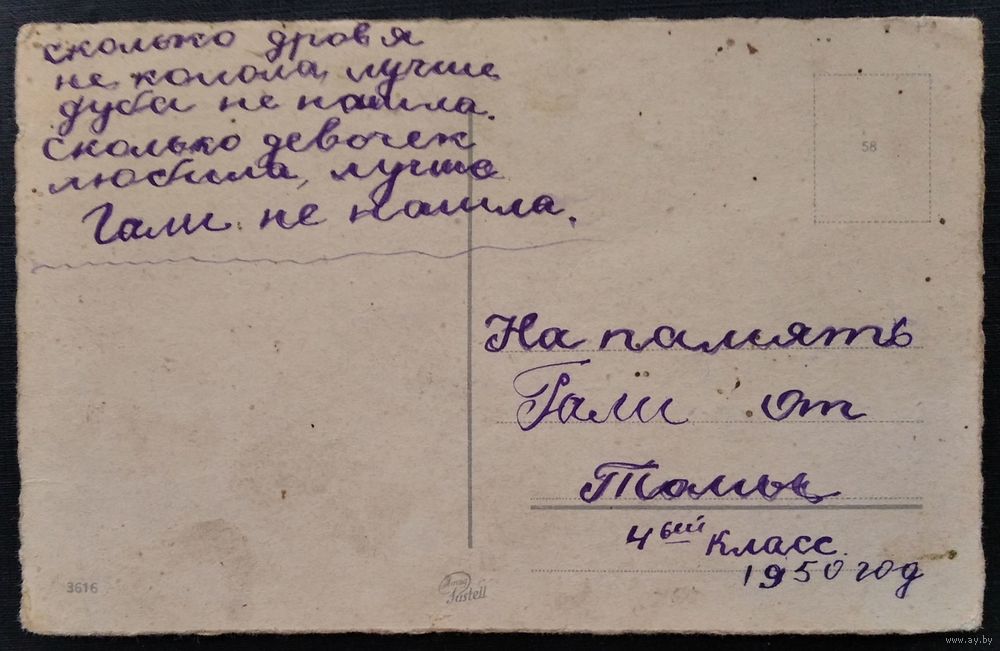 сколько дров я
не колола, лучше
дуба не нашла.
сколько девочек
любила, лучше
Гали не нашла.
58
На память
Гали от
Томы
4ый класс.
1950 год
3616
Pastell
www.ay.by